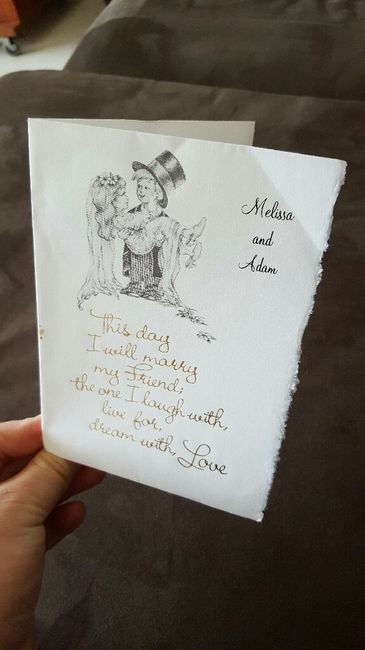 Melissa
and
Adam
This day
I will marry
my Friend;
the one I laugh with,
live for,
dream with, Love